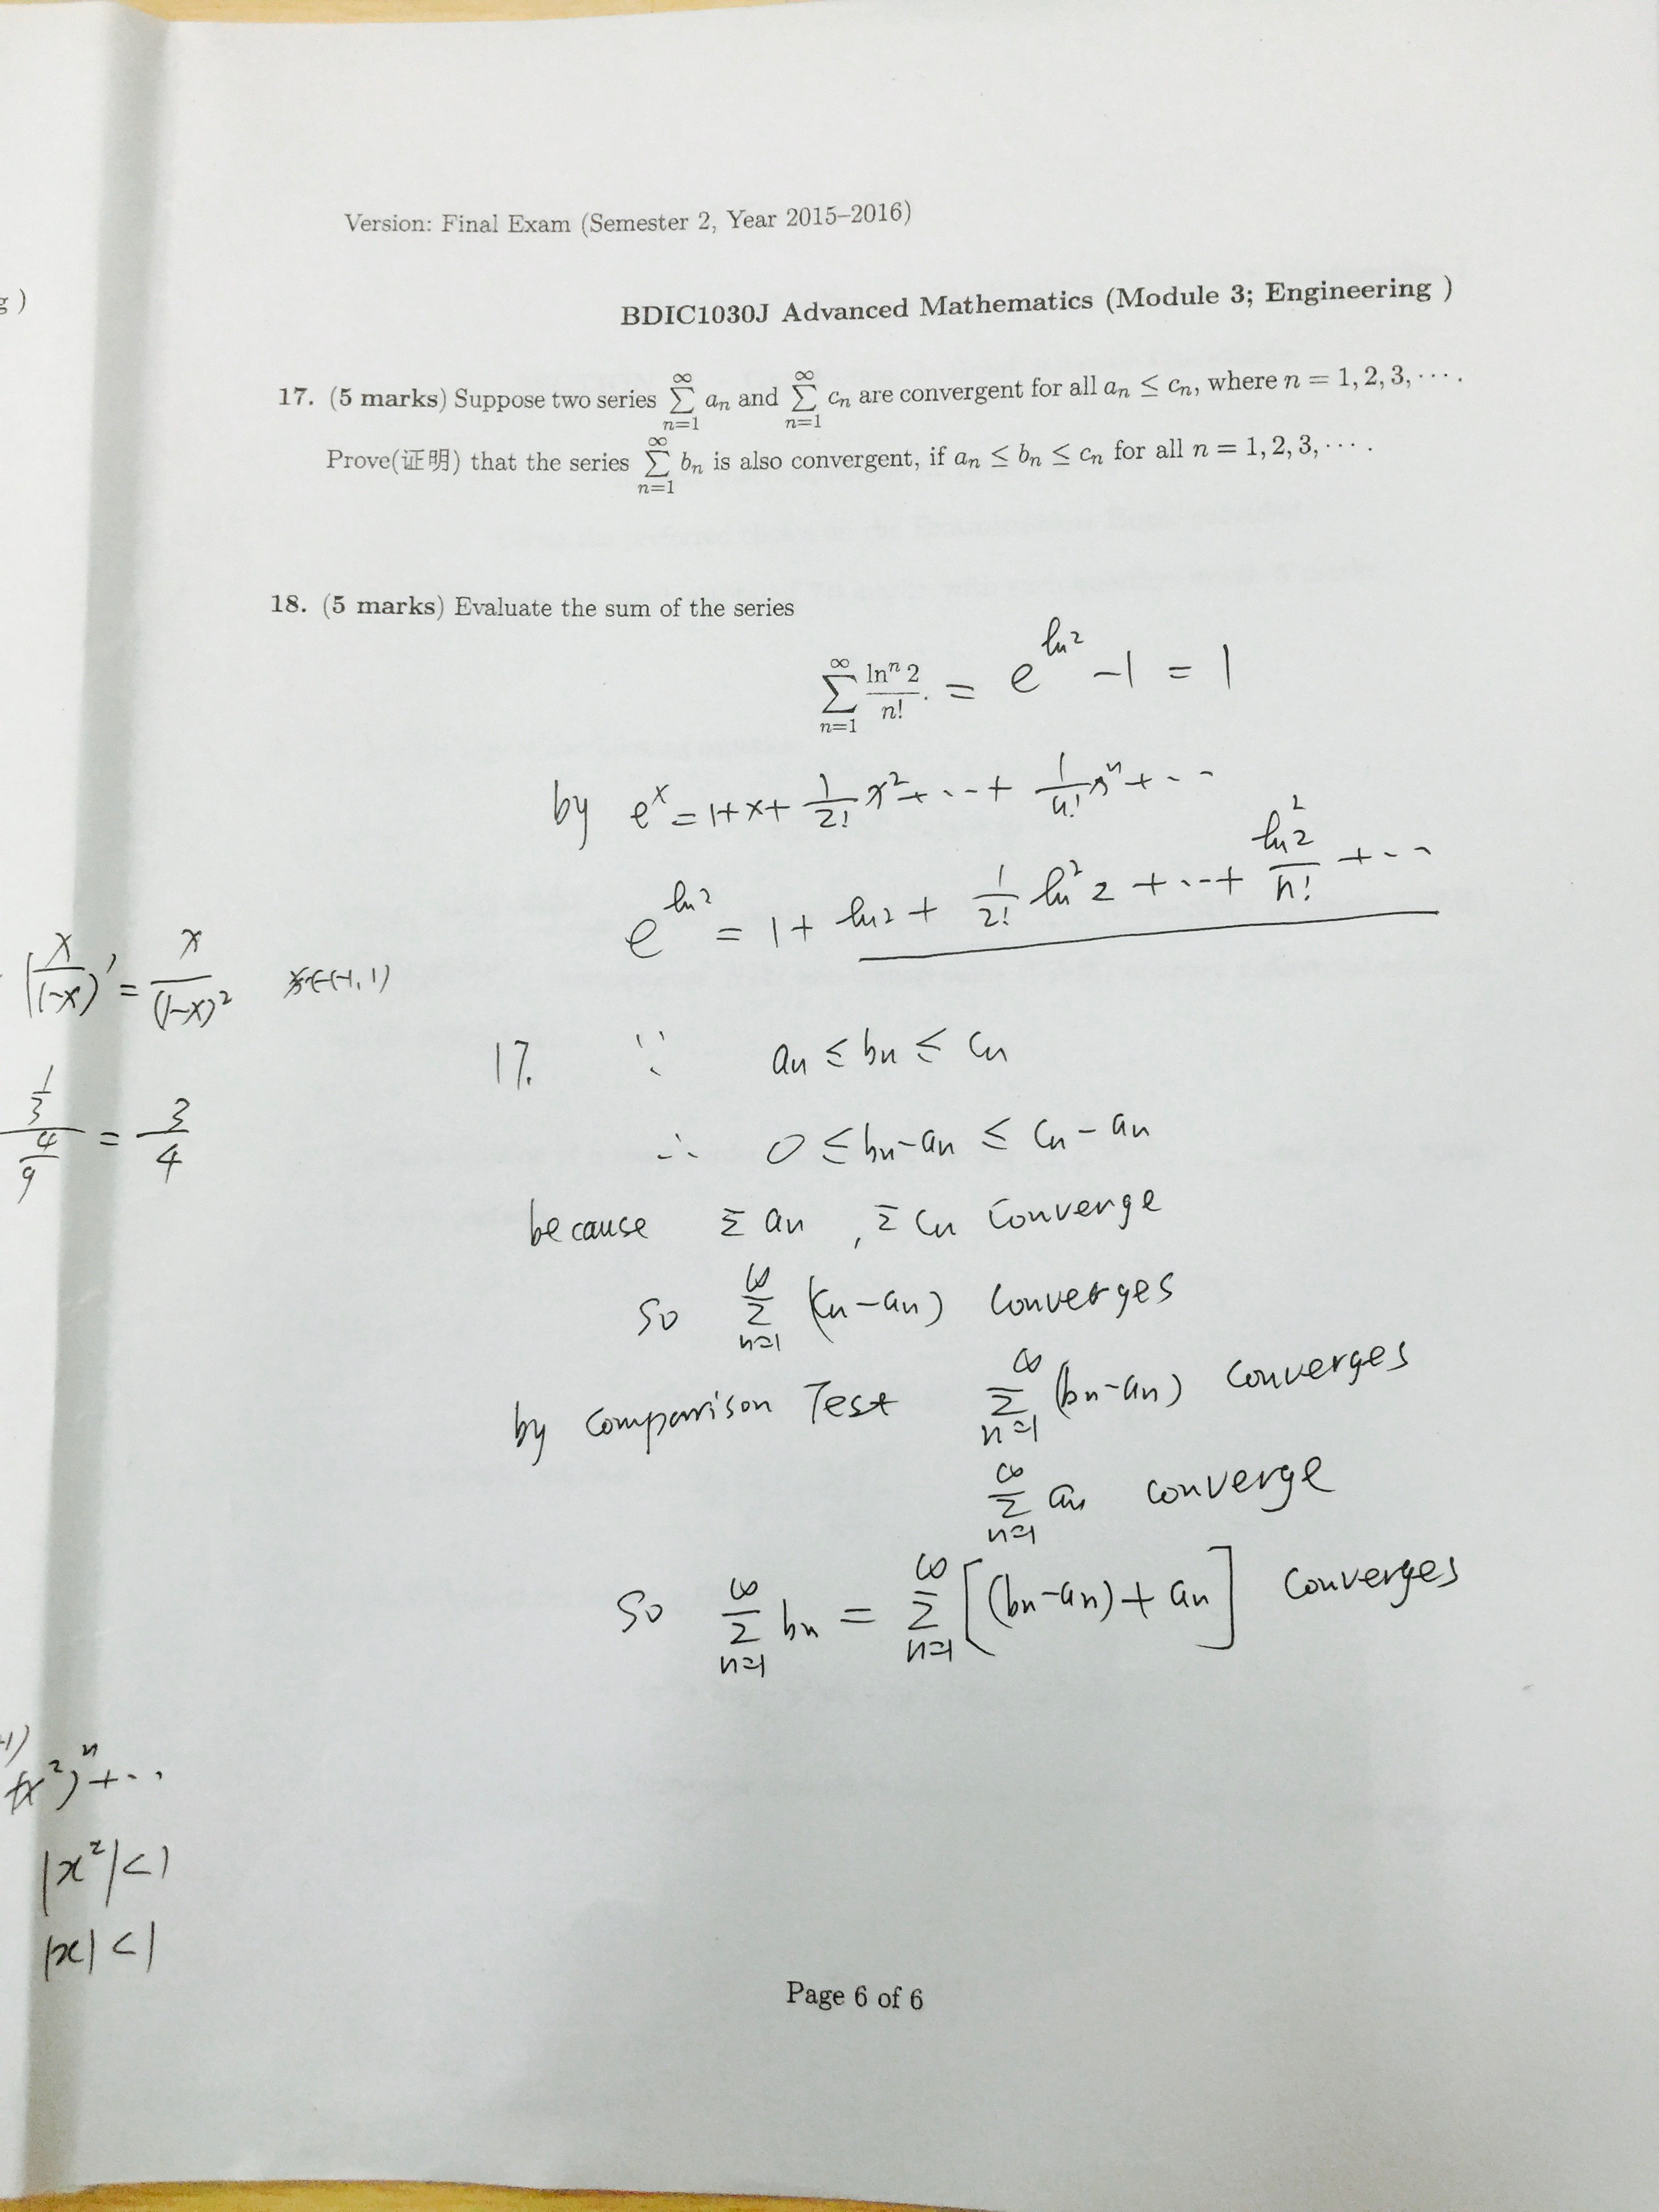 Version: Final Exam (Semester 2, Year 2015–2016)
g )
BDIC1030J Advanced Mathematics (Module 3; Engineering )
17. (5 marks) Suppose two series ∑_{n=1}^{∞} aₙ and ∑_{n=1}^{∞} cₙ are convergent for all aₙ ≤ cₙ, where n = 1, 2, 3, ⋯ .
Prove(证明) that the series ∑_{n=1}^{∞} bₙ is also convergent, if aₙ ≤ bₙ ≤ cₙ for all n = 1, 2, 3, ⋯ .
18. (5 marks) Evaluate the sum of the series
∑_{n=1}^{∞} lnⁿ 2 / n! . = e^{ln2} − 1 = 1
by e^x = 1 + x + 1/2! x² + ⋯ + 1/n! xⁿ + ⋯
e^{ln2} = 1 + ln2 + 1/2! ln² 2 + ⋯ + ln² 2 / n! + ⋯
(x/(1−x))' = x/(1−x)² x∈(−1, 1)
17. ∵ aₙ ≤ bₙ ≤ cₙ
(1/3)/(4/9) = 3/4
∴ 0 ≤ bₙ − aₙ ≤ cₙ − aₙ
because Σ aₙ , Σ cₙ converge
So ∑_{n=1}^{∞} (cₙ − aₙ) converges
by comparison Test ∑_{n=1}^{∞} (bₙ − aₙ) converges
∑_{n=1}^{∞} aₙ converge
So ∑_{n=1}^{∞} bₙ = ∑_{n=1}^{∞} [(bₙ − aₙ) + aₙ] converges
x²)ⁿ + ⋯
|x²| < 1
|x| < 1
Page 6 of 6